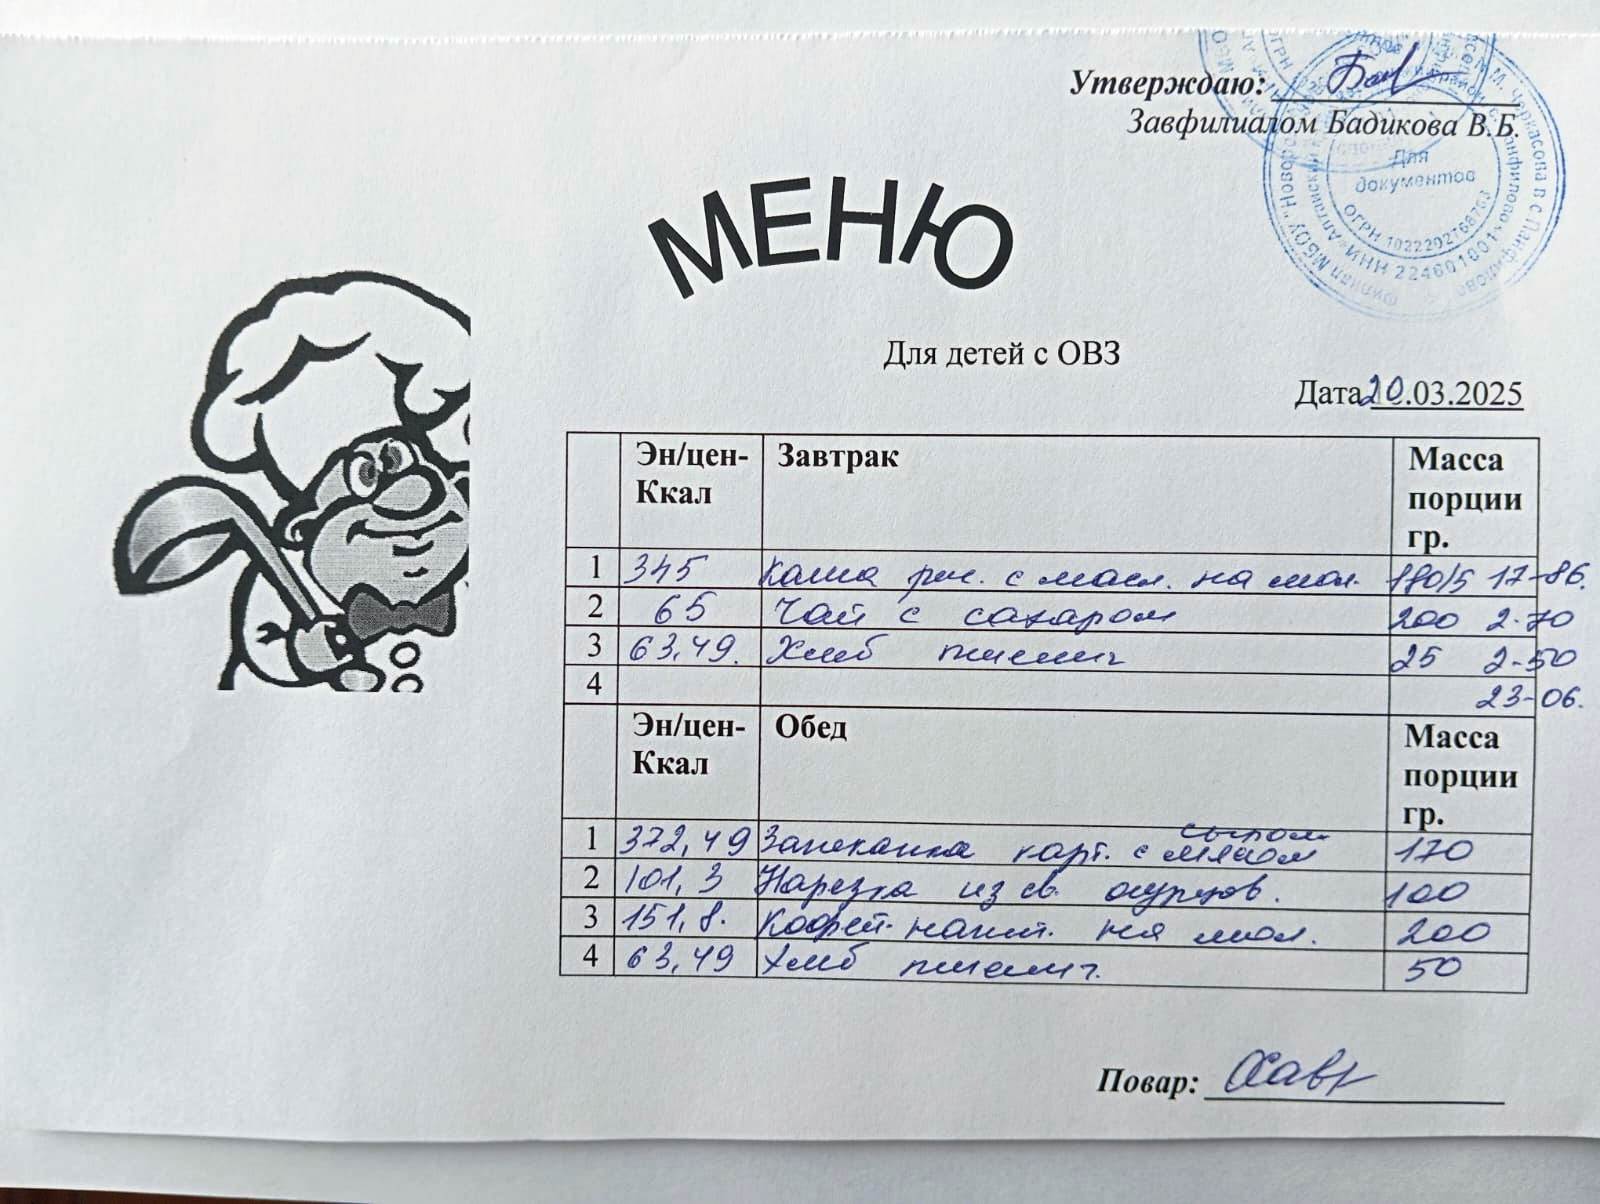 Утверждаю:
Завфилиалом Бадикова В.Б.
Для
документов
ОГРН 1022202768763
ИНН 224601001
МЕНЮ
Для детей с ОВЗ
Дата 20.03.2025
Эн/цен-Ккал Завтрак Масса порции гр.
1 345 Каша рис. с масл. на мол. 180/5 17-86.
2 65 Чай с сахаром 200 2-70
3 63,49. Хлеб пшенич 25 2-50
4 23-06.
Эн/цен-Ккал Обед Масса порции гр.
1 372,49 Запеканка карт. с мясом сыром 170
2 101,3 Нарезка из св. огурцов. 100
3 151,8. Кофей. напит. на мол. 200
4 63,49 Хлеб пшенич. 50
Повар: